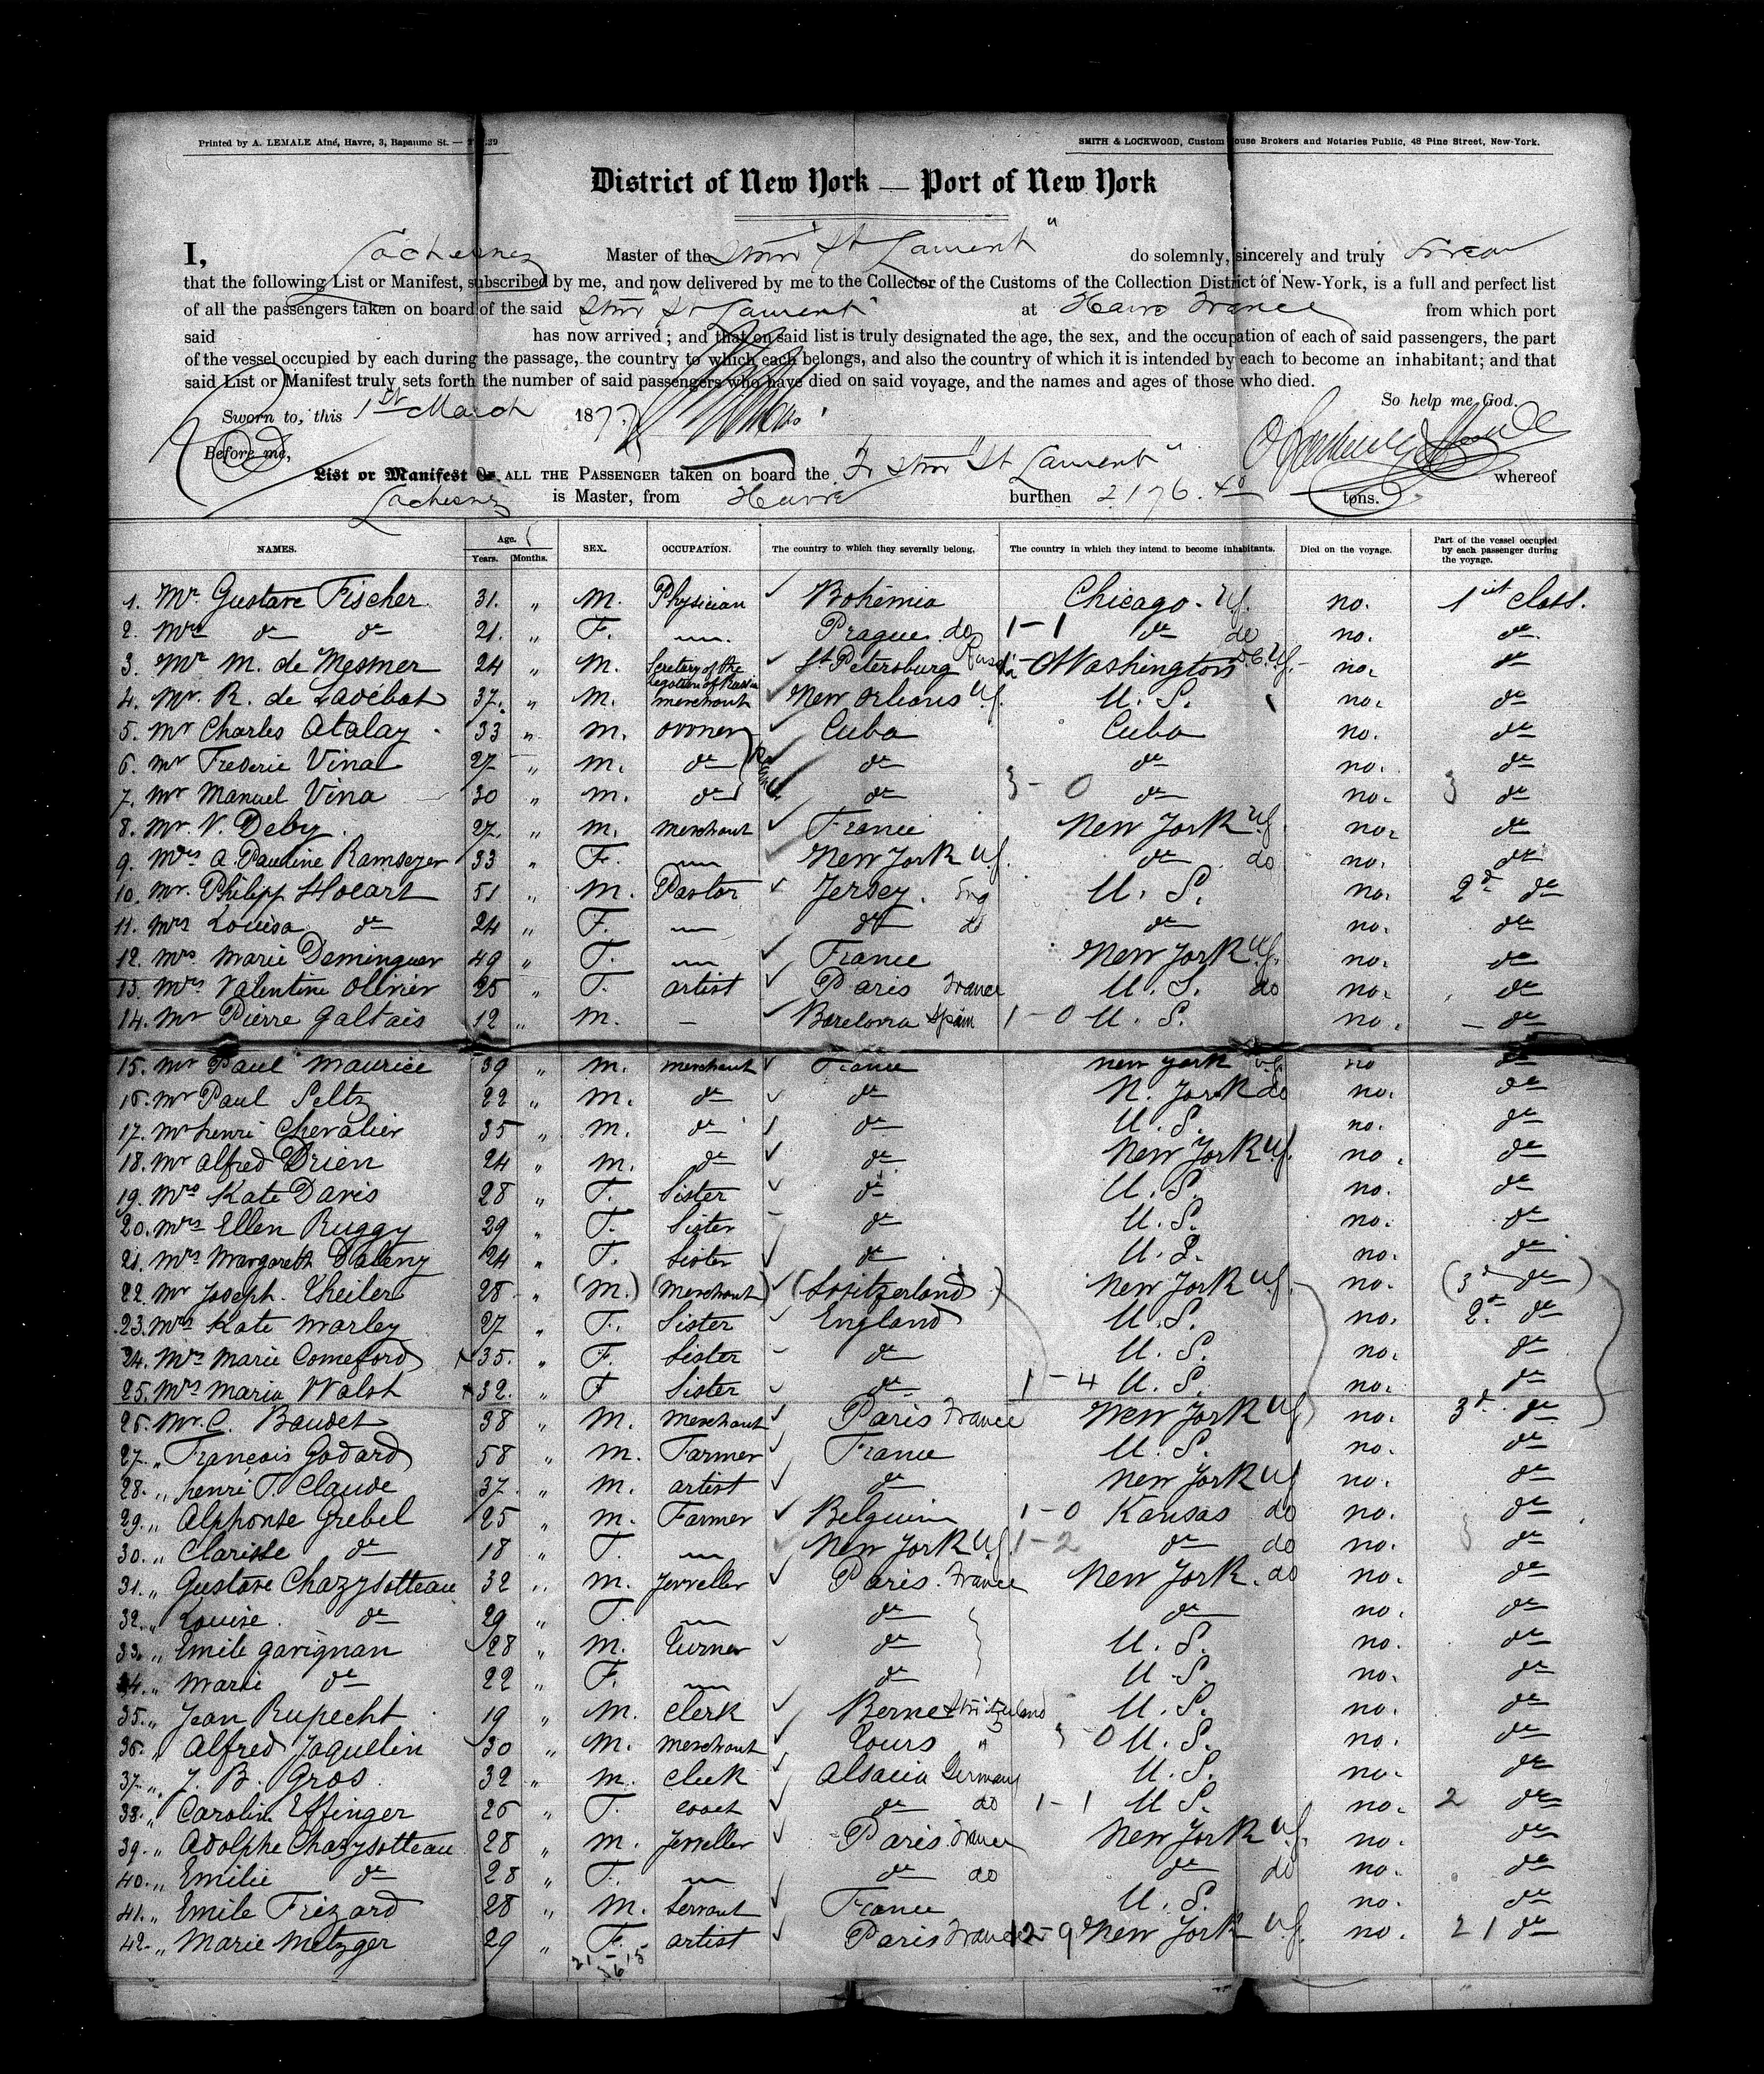 Printed by A. LEMALE Aîné, Havre, 3, Bapaume St. —
SMITH & LOCKWOOD, Custom House Brokers and Notaries Public, 48 Pine Street, New-York.
District of New York — Port of New York
I, Lachesnez Master of the Stmr "St Laurent" do solemnly, sincerely and truly swear
that the following List or Manifest, subscribed by me, and now delivered by me to the Collector of the Customs of the Collection District of New-York, is a full and perfect list
of all the passengers taken on board of the said Stmr "St Laurent" at Havre France from which port
said has now arrived; and that on said list is truly designated the age, the sex, and the occupation of each of said passengers, the part
of the vessel occupied by each during the passage, the country to which each belongs, and also the country of which it is intended by each to become an inhabitant; and that
said List or Manifest truly sets forth the number of said passengers who have died on said voyage, and the names and ages of those who died.
So help me God.
Sworn to, this 1st March 1877
Before me,
List or Manifest OF ALL THE PASSENGER taken on board the Fr Stmr "St Laurent" whereof
Lachesnez is Master, from Havre burthen 2176.40 tons.
NAMES. Age. Years. Months. SEX. OCCUPATION. The country to which they severally belong. The country in which they intend to become inhabitants. Died on the voyage. Part of the vessel occupied by each passenger during the voyage.
1. Mr Gustave Fischer 31. " M. Physician Bohemia Chicago. U.S. no. 1st class.
2. Mrs do do 21. " F. — Prague do 1-1 do do no. do
3. Mr M. de Mesmer 24 " M. Secretary of the Legation of Russia St Petersburg Russia Washington D.C. U.S. no. do
4. Mr. R. de Ladebat 37. " M. merchant New Orleans U.S. U.S. no. do
5. Mr Charles Atalay 33 " M. owner Cuba Cuba no. do
6. Mr Frederic Vina 27 " M. do do do no. do
7. Mr Manuel Vina 30 " M. do do 3-0 do no. 3 do
8. Mr. V. Deby. 27. " M. merchant France New York U.S. no. do
9. Mrs A. Pauline Ramseyer 33 " F. — New York U.S. do do no. do
10. Mr. Philipp Hocart 51 " M. Pastor Jersey. Eng U.S. no. 2d do
11. Mrs Louisa do 24 " F. — do do do no. do
12. Mrs Marie Deminguer 49 " F. — France New York U.S. no. do
13. Mrs Valentine Olivier 25 " F. artist Paris France U.S. do no. do
14. Mr Pierre Galtais 12 " M. — Barelona Spain 1-0 U.S. no. do
15. Mr Paul Maurice 39 " M. merchant France New York U.S. no do
16. Mr Paul Seltz 22 " M. do do N. York do no. do
17. Mr henri Chevalier 35 " M. do do U.S. no. do
18. Mr Alfred Drien 24 " M. do do New York U.S. no. do
19. Mrs Kate Davis 28 " F. Sister do U.S. no. do
20. Mrs Ellen Ruggy 29 " F. Sister do U.S. no. do
21. Mrs Margareth Daleny 24 " F. Sister do U.S. no. do
22. Mr Joseph. Theiler 28 " (M.) (Merchant) (Switzerland) New York U.S. no. (3d do)
23. Mrs Kate Marley 27 " F. Sister England U.S. no. 2d do
24. Mrs Marie Comeford 35. " F. Sister do U.S. no. do
25. Mrs Maria Walsh 32. " F Sister do 1-4 U.S. no. do
26. Mr. C. Baudet 38 " M. Merchant Paris France New York U.S. no. 3d do
27. " François Godard 58 " M. Farmer France U.S. no. do
28. " henri T. Claude 37. " M. artist do New York U.S. no. do
29. " Alphonse Grebel 25 " M. Farmer Belguim 1-0 Kansas do no. do
30. " Clarisse do 18 " F. — New York U.S. 1-2 do do no. do
31. " Gustave Chazysotteau 32 " M. Jeweller Paris. France New York. do no. do
32. " Louise. do 29 " F. — do do no. do
33. " Emile Gavignan 28 " M. Turner do U.S. no. do
34. " Marie do 22 " F. — do U.S. no. do
35. " Jean Rupecht 19 " M. Clerk Berne Switzerland U.S. no. do
36. " Alfred Jaquelin 30 " M. merchant Tours " 3-0 U.S. no. do
37. " J. B. Gros. 32 " M. Clerk Alsacia Germany U.S. no. do
38. " Carolin Effinger 26 " F. cook do do 1-1 U.S. no. 2 do
39. " Adolphe Chazysotteau 28 " M. Jeweller Paris. France New York U.S. no. do
40. " Emilie do 28 " F. — do do do do no. do
41. " Emile Frizard 28 " M. Servant France U.S. no. do
42. " Marie Metzger 29 " F. artist Paris France 12-9 New York U.S. no. 21 do
21-15
36